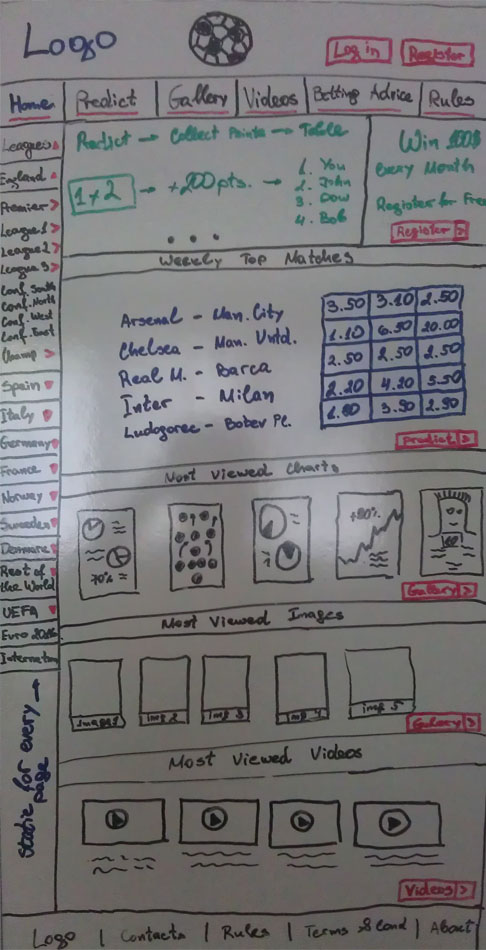 Logo
Log in
Register
Home
Predict
Gallery
Videos
Betting Advice
Rules
Leagues
England
Premier >
League 1 >
League 2 >
League 3 >
Conf. South
Conf. North
Conf. West
Conf. East
Champ >
Spain
Italy
Germany
France
Norway
Sweeden
Denmark
Rest of
the World
UEFA
Euro 2016
Static for every →
page
Predict → Collect Points → Table
1 x 2 → +200 pts. →
1. You
2. John
3. Dow
4. Bob
Win 100$
Every Month
Register for Free
Register >
Weekly Top Matches
Arsenal - Man. City 3.50 3.10 2.50
Chelsea - Man. Untd. 1.10 6.50 20.00
Real M. - Barca 2.50 2.50 2.50
Inter - Milan 2.20 4.20 5.50
Ludogorec - Botev Pl. 1.80 3.90 2.90
Predict >
Most Viewed Charts
70% =
+80%
Gallery >
Most Viewed Images
Image 1
img 2
img 3
img 4
img 5
Gallery >
Most Viewed Videos
Videos >
Logo | Contacts | Rules | Terms & Cond | About